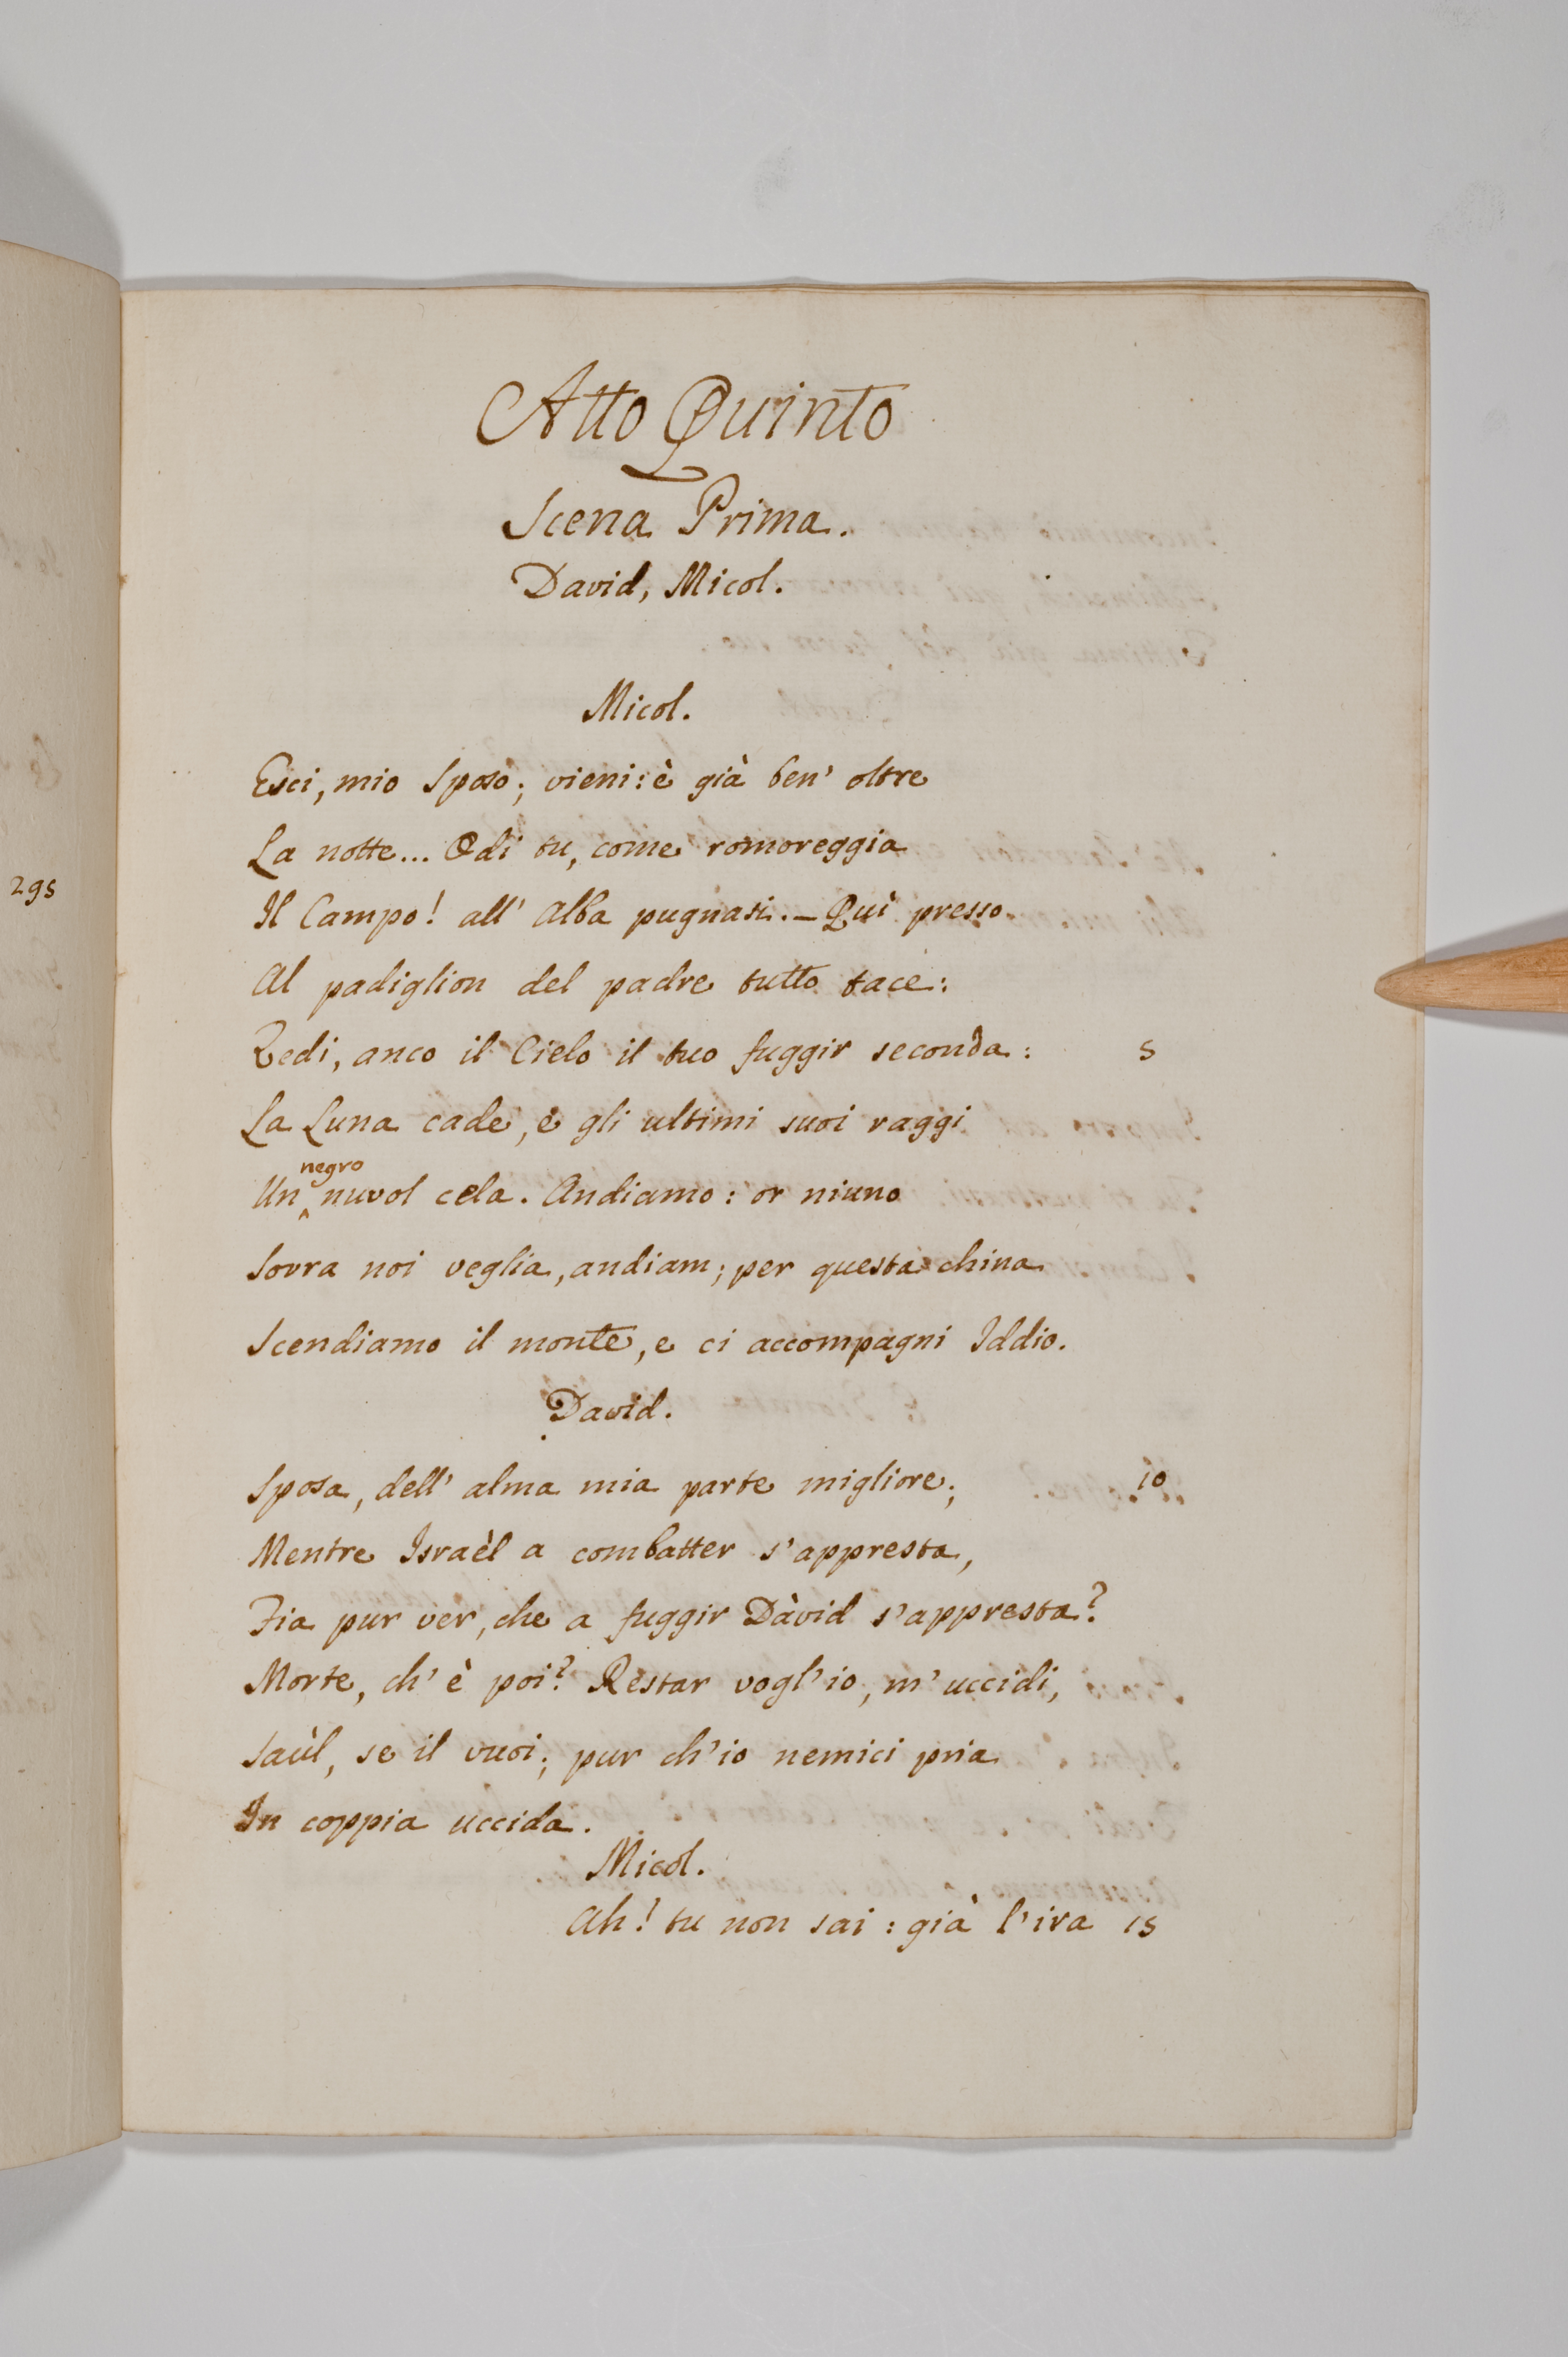 Atto Quinto
Scena Prima.
David, Micol.
Micol.
Esci, mio Sposo; vieni: è già ben' oltre
La notte... Odi tu, come romoreggia
295
Il Campo! all' Alba pugnasi. – Quì presso
Al padiglion del padre tutto tace:
Vedi, anco il Cielo il tuo fuggir seconda: 5
La Luna cade, e gli ultimi suoi raggi
negro
Un ^ nuvol cela. Andiamo: or niuno
Sovra noi veglia, andiam; per questa china
Scendiamo il monte, e ci accompagni Iddio.
David.
Sposa, dell' alma mia parte migliore; 10
Mentre Israèl a combatter s'appresta,
Fia pur ver, che a fuggir Dàvid s'appresta?
Morte, ch' è poi? Restar vogl'io, m'uccidi,
Saùl, se il vuoi; pur ch'io nemici pria
In coppia uccida.
Micol.
Ah! tu non sai: già l'ira 15